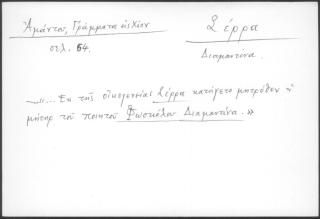 Ἀμάντου, Γράμματα εἰς Χίον
Σέρρα
σελ. 64.
Διαμαντίνα.
«... Ἐκ τῆς οἰκογενείας Σέρρα κατήγετο μητρόθεν ἡ
μήτηρ τοῦ ποιητοῦ Φωσκόλου Διαμαντίνα.»